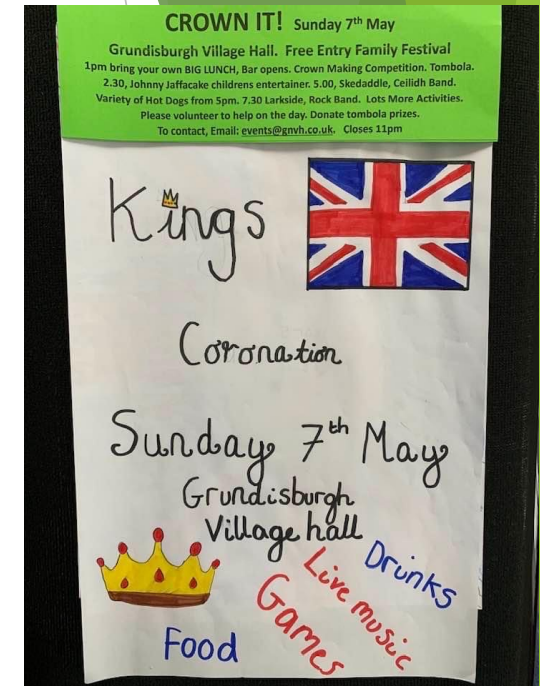 CROWN IT! Sunday 7th May
Grundisburgh Village Hall. Free Entry Family Festival
1pm bring your own BIG LUNCH, Bar opens. Crown Making Competition. Tombola.
2.30, Johnny Jaffacake childrens entertainer. 5.00, Skedaddle, Ceilidh Band.
Variety of Hot Dogs from 5pm. 7.30 Larkside, Rock Band. Lots More Activities.
Please volunteer to help on the day. Donate tombola prizes.
To contact, Email: events@gnvh.co.uk. Closes 11pm
Kings
Coronation
Sunday 7th May
Grundisburgh
Village hall
Drinks
Live music
Games
Food